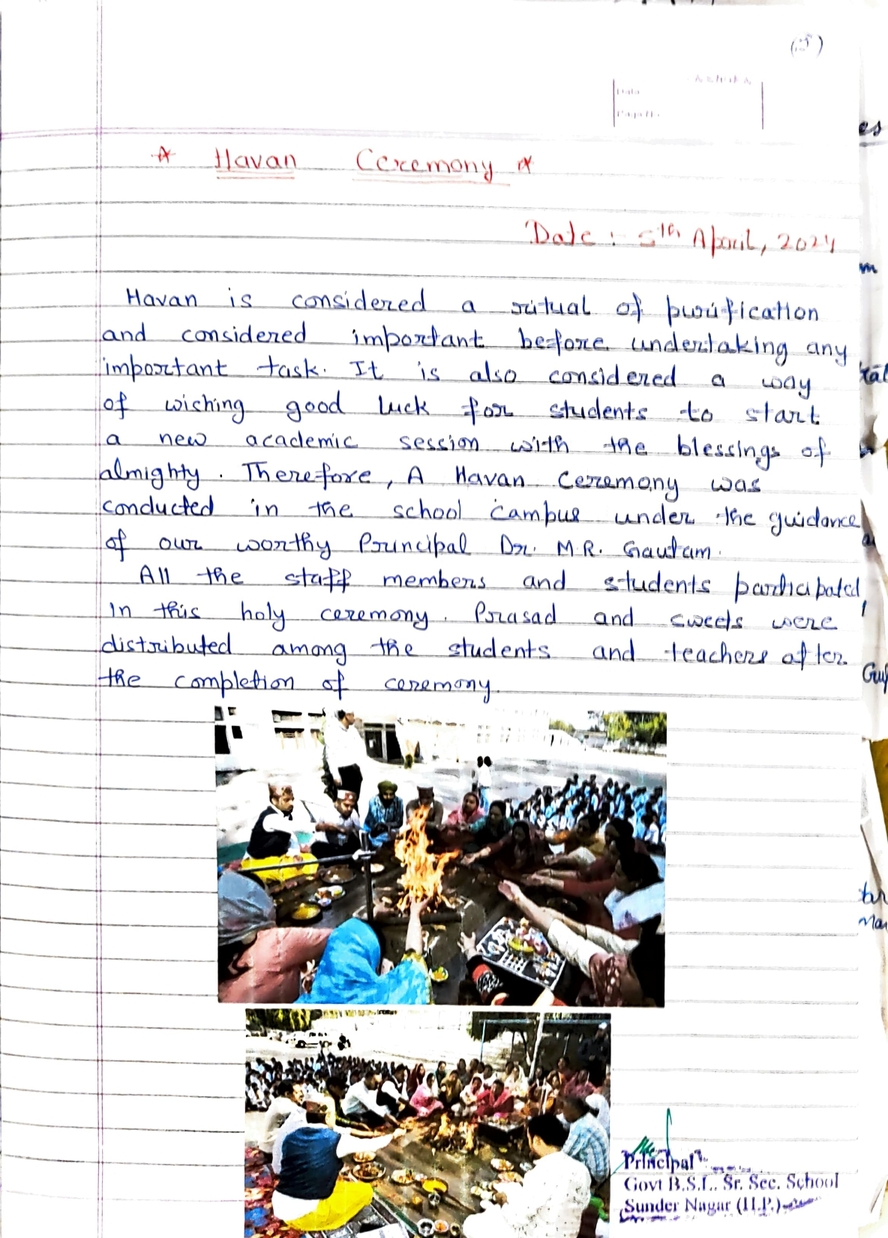 (5)
Date
Page No.
☆ Havan Ceremony ☆
Date : 5th April, 2024
Havan is considered a ritual of purification
and considered important before undertaking any
important task. It is also considered a way
of wishing good luck for students to start
a new academic session with the blessings of
almighty. Therefore, A Havan Ceremony was
conducted in the school campus under the guidance
of our worthy Principal Dr. M.R. Gautam.
All the staff members and students participated
In this holy ceremony. Prasad and sweets were
distributed among the students and teachers after
the completion of ceremony.
Principal
Govt B.S.L. Sr. Sec. School
Sunder Nagar (H.P.)